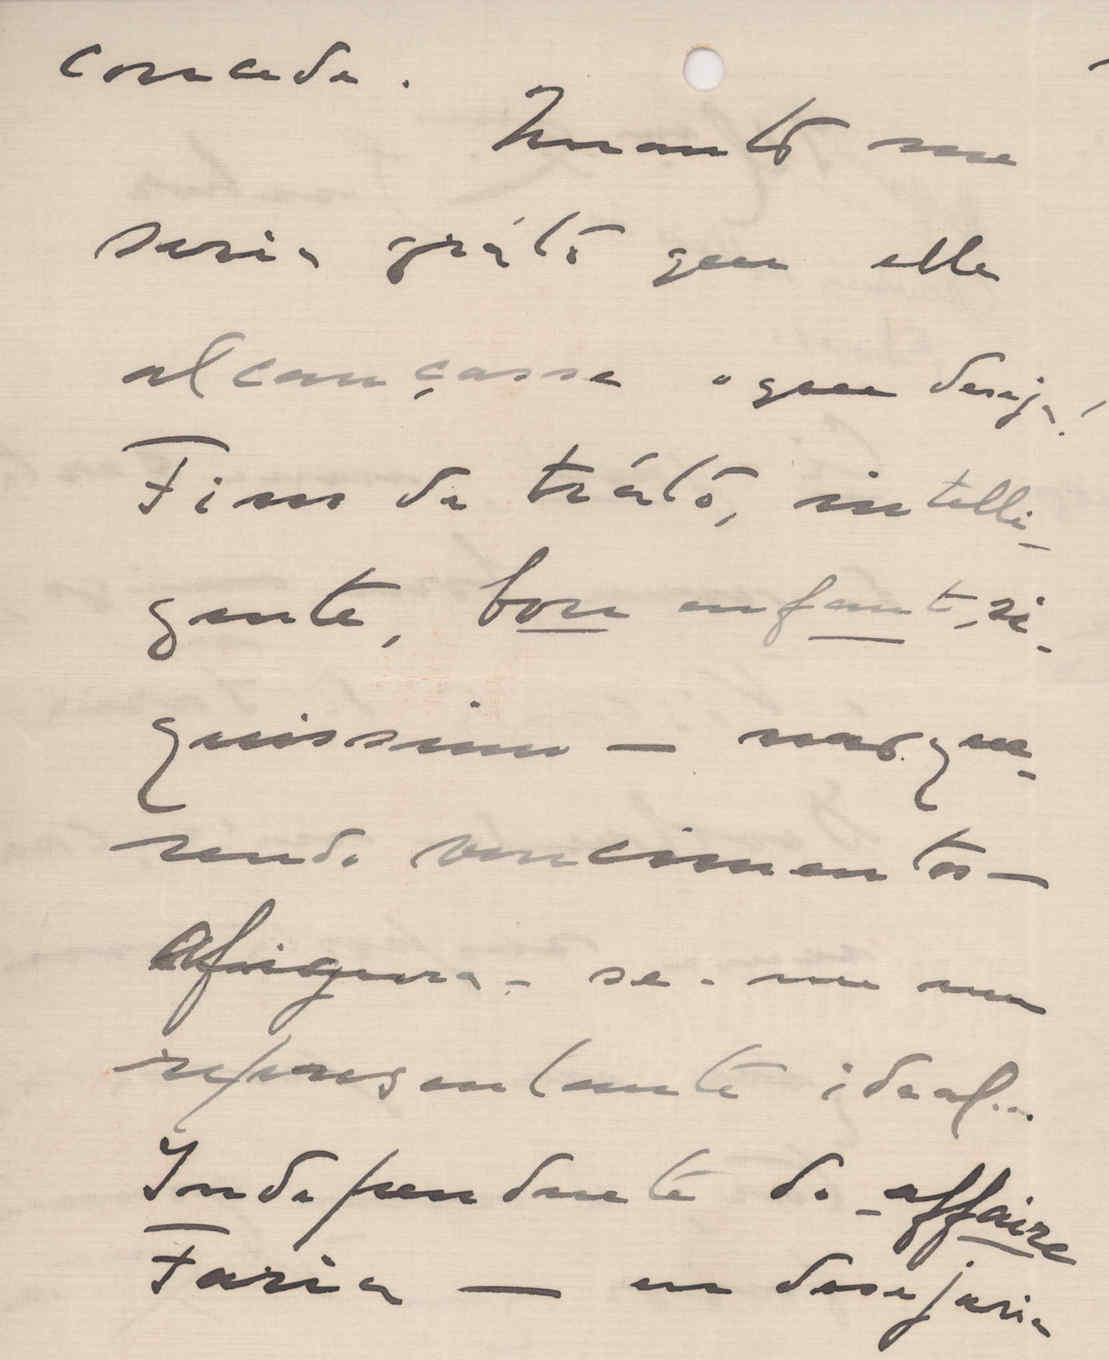 conceda.
Quanto me
seria gráto que elle
alcançasse o que deseja!
Fino de tráto, intelli-
gente, bon enfant, ri-
quissimo — não que-
rendo vencimentos —
Afigura-se-me um
representante ideal...
Independente do affaire
Faria — eu desejaria